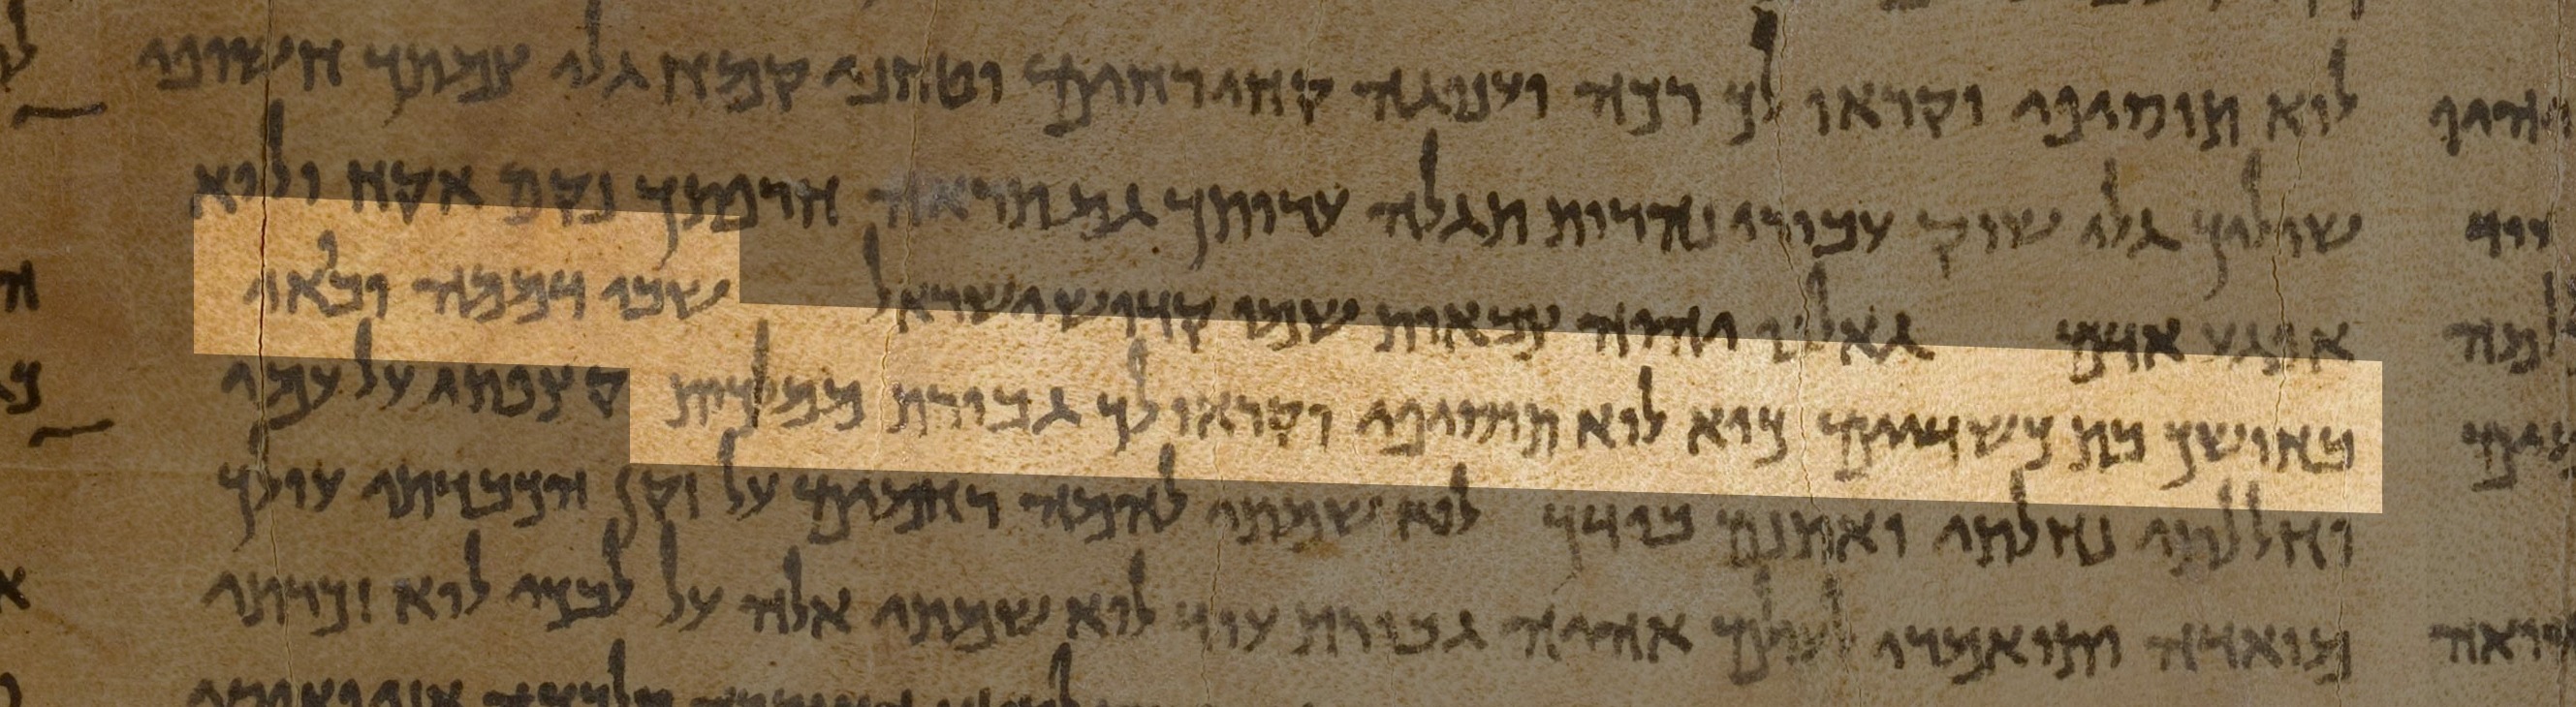 לוא תוסיפי יקראו לך רכה וענוגה קחי רחים וטחני קמח גלי צמתך חשופי
שוליך גלי שוק עבורי נהרות תגלה ערותך גם תראה חרפתך נקם אקח ולוא
אפגע אדם גאלנו יהוה צבאות שמו קדוש ישראל שבי דממה ובאי
בחושך בת כשדיים כיא לוא תוסיפי יקראו לך גבורת ממלכות קצפתי על עמי
וחללתי נחלתי ואתנם בידך לוא שמתי להמה רחמים על זקן הכבדתי עולך
מואדה ותואמרי לעולם אהיה גבורת עוד לוא שמתי אלה על לבכי לוא זכרתי